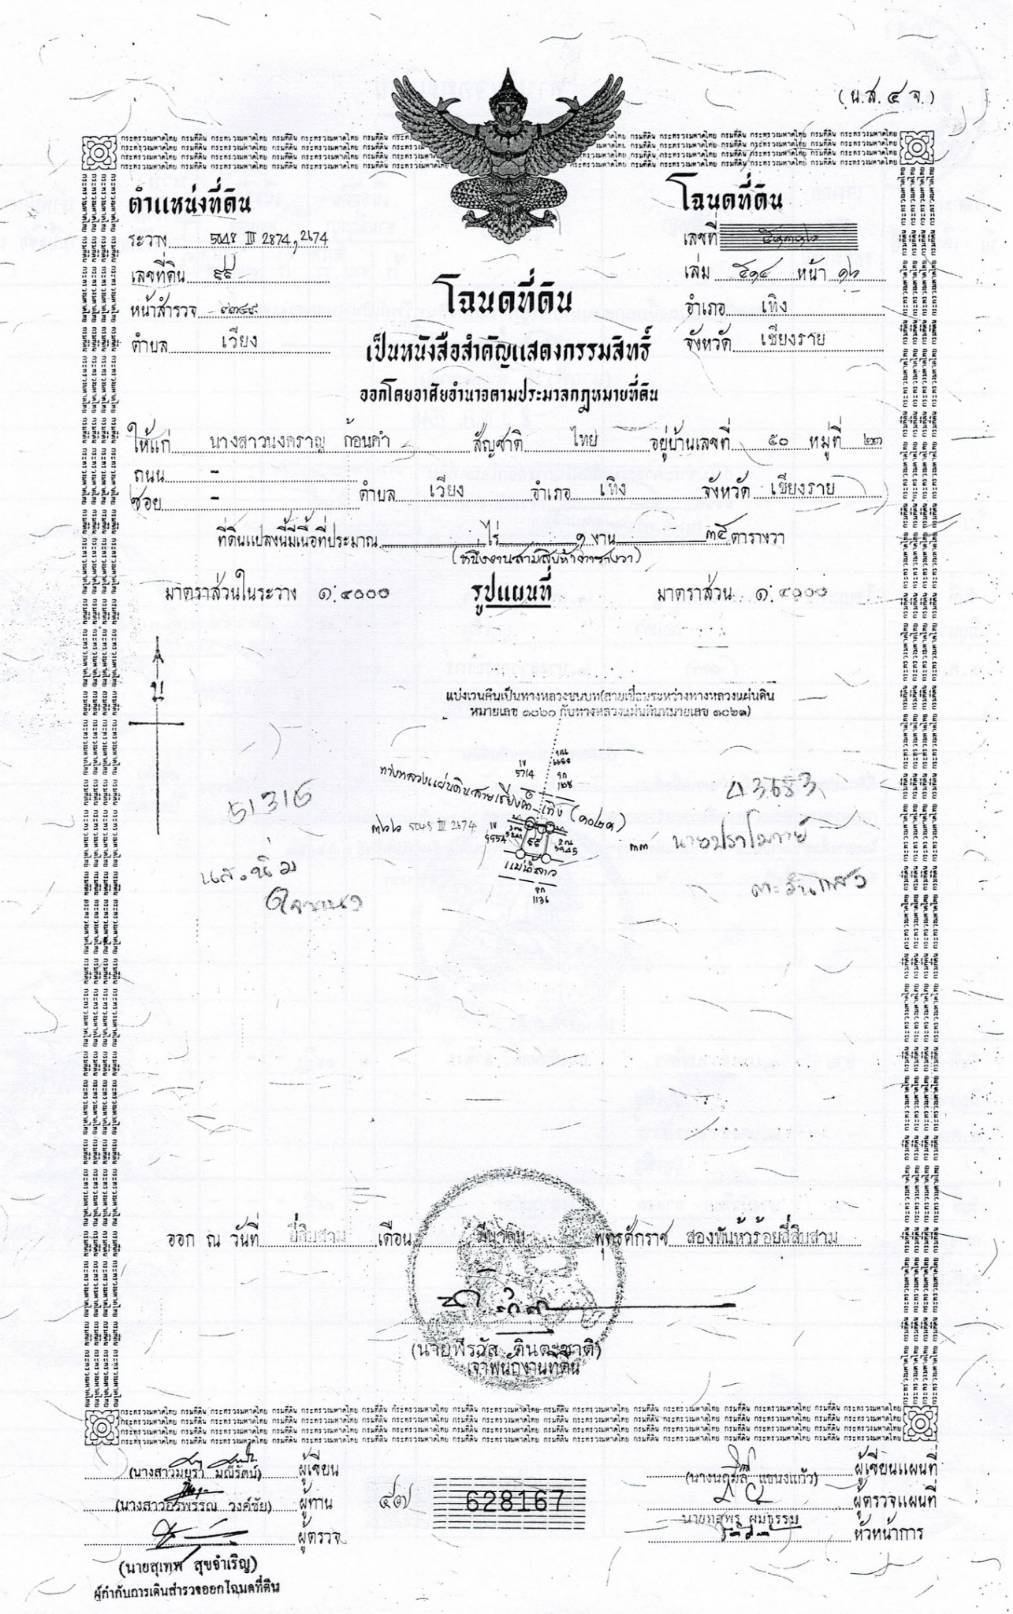 (น.ส. ๔ จ.)
ตำแหน่งที่ดิน
ระวาง 5048 III 2874, 2674
เลขที่ดิน ๙๕
หน้าสำรวจ
ตำบล เวียง
โฉนดที่ดิน
เลขที่
เล่ม ๕๑๔ หน้า ๑๖
อำเภอ เทิง
จังหวัด เชียงราย
โฉนดที่ดิน
เป็นหนังสือสำคัญแสดงกรรมสิทธิ์
ออกโดยอาศัยอำนาจตามประมวลกฎหมายที่ดิน
ให้แก่ นางสาวนงคราญ ก้อนคำ สัญชาติ ไทย อยู่บ้านเลขที่ ๕๐ หมู่ที่
ถนน -
ซอย - ตำบล เวียง อำเภอ เทิง จังหวัด เชียงราย
ที่ดินแปลงนี้มีเนื้อที่ประมาณ ไร่ ๑ งาน ๓๕ ตารางวา
(หนึ่งงานสามสิบห้าตารางวา)
มาตราส่วนในระวาง ๑:๔๐๐๐ รูปแผนที่ มาตราส่วน ๑:๔๐๐๐
น
แบ่งเวนคืนเป็นทางหลวงชนบท(สายเชื่อมระหว่างทางหลวงแผ่นดิน
หมายเลข ๑๐๒๐ กับทางหลวงแผ่นดินหมายเลข ๑๐๒๑)
5714
ทางหลวงแผ่นดินสายเชียงคำ-เทิง (๑๐๒๑)
51316
43683
5048 III 2674
แม่น้ำลาว
1136
ออก ณ วันที่ ยี่สิบสาม เดือน มีนาคม พุทธศักราช สองพันห้าร้อยสี่สิบสาม
(นายพีรวัส จินตะชาติ)
เจ้าพนักงานที่ดิน
(นางสาวมยุรา มณีรัตน์) ผู้เขียน
(นางสาวอรพรรณ วงค์ชัย) ผู้ทาน
ผู้ตรวจ
(นายสุเทพ สุขจำเริญ)
ผู้กำกับการเดินสำรวจออกโฉนดที่ดิน
๕๗ 628167
(นางนฤมล แขนงแก้ว) ผู้เขียนแผนที่
ผู้ตรวจแผนที่
หัวหน้าการ